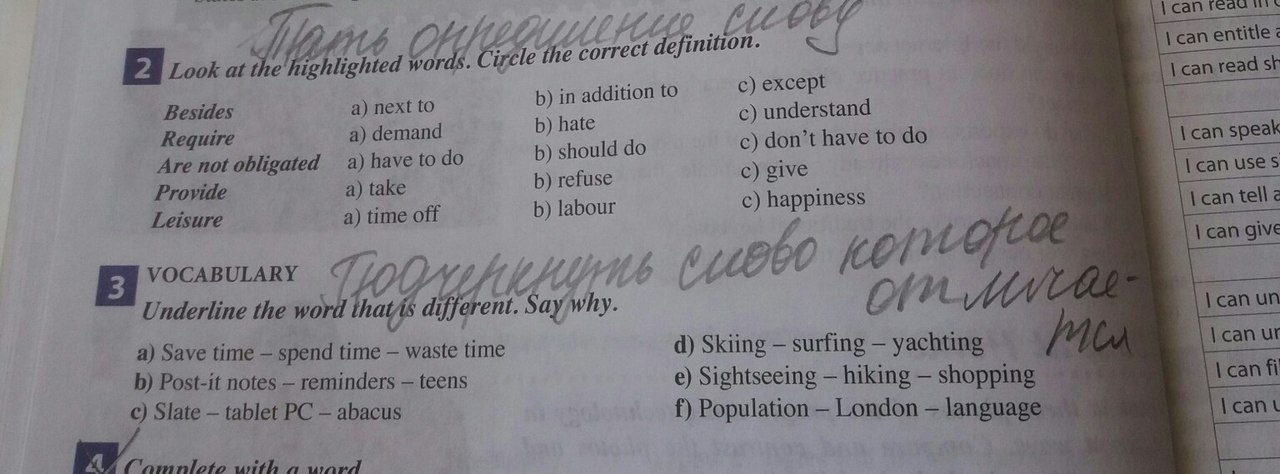 Дать определение слову
2 Look at the highlighted words. Circle the correct definition.
Besides a) next to b) in addition to c) except
Require a) demand b) hate c) understand
Are not obligated a) have to do b) should do c) don't have to do
Provide a) take b) refuse c) give
Leisure a) time off b) labour c) happiness
3 VOCABULARY
Подчеркнуть слово которое
отличае-
тся
Underline the word that is different. Say why.
a) Save time – spend time – waste time
b) Post-it notes – reminders – teens
c) Slate – tablet PC – abacus
d) Skiing – surfing – yachting
e) Sightseeing – hiking – shopping
f) Population – London – language
4 Complete with a word
I can read in
I can entitle a
I can read sh
I can speak
I can use s
I can tell a
I can give
I can un
I can ur
I can fi
I can u